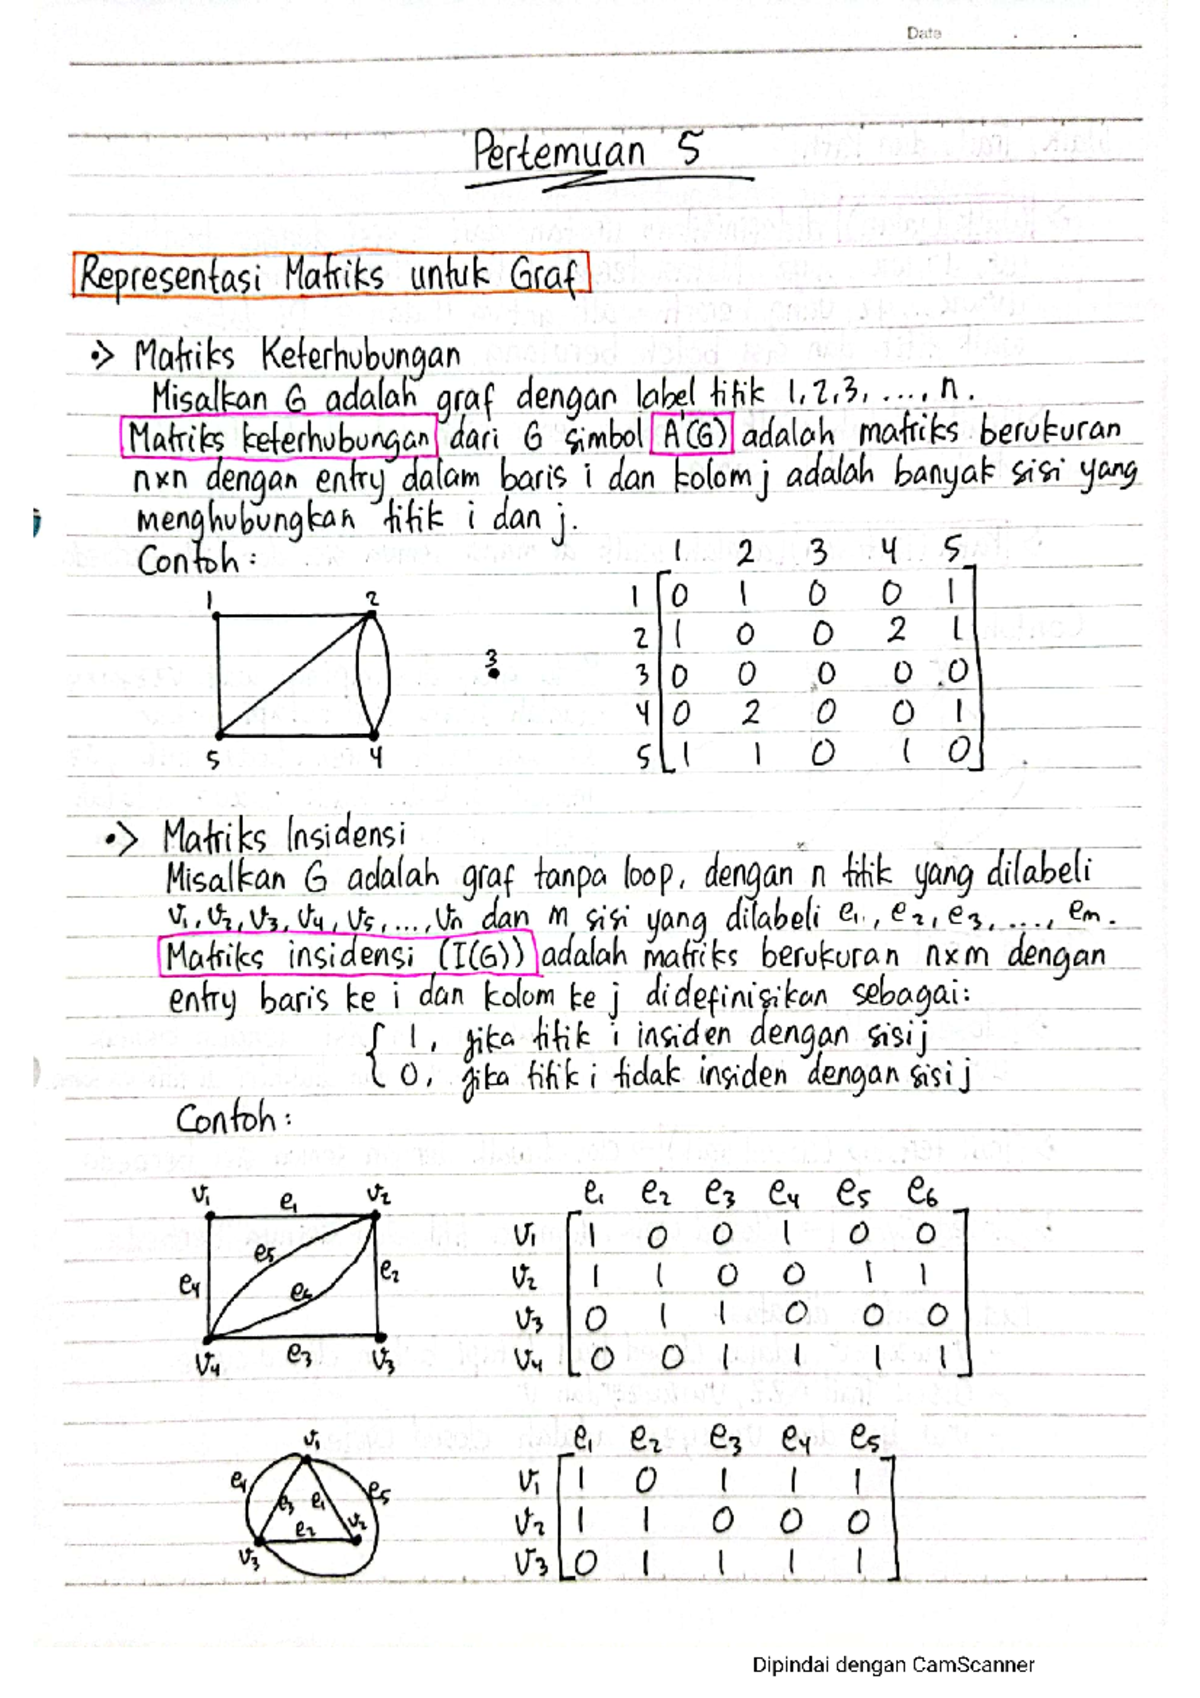 Date . .
Pertemuan 5
Representasi Matriks untuk Graf
•> Matriks Keterhubungan
Misalkan G adalah graf dengan label titik 1, 2, 3, ..., n.
Matriks keterhubungan dari G simbol A(G) adalah matriks berukuran
n×n dengan entry dalam baris i dan kolom j adalah banyak sisi yang
menghubungkan titik i dan j.
Contoh :
1 2
3
5 4
1 2 3 4 5
1 0 1 0 0 1
2 1 0 0 2 1
3 0 0 0 0 0
4 0 2 0 0 1
5 1 1 0 1 0
•> Matriks Insidensi
Misalkan G adalah graf tanpa loop, dengan n titik yang dilabeli
v₁, v₂, v₃, v₄, v₅, ..., vn dan m sisi yang dilabeli e₁, e₂, e₃, ..., em.
Matriks insidensi (I(G)) adalah matriks berukuran n×m dengan
entry baris ke i dan kolom ke j didefinisikan sebagai:
{ 1, jika titik i insiden dengan sisi j
0, jika titik i tidak insiden dengan sisi j
Contoh :
v₁ e₁ v₂
e₅
e₄ e₆ e₂
v₄ e₃ v₃
e₁ e₂ e₃ e₄ e₅ e₆
v₁ 1 0 0 1 0 0
v₂ 1 1 0 0 1 1
v₃ 0 1 1 0 0 0
v₄ 0 0 1 1 1 1
v₁
e₄ e₃ e₁ e₅
e₂ v₂
v₃
e₁ e₂ e₃ e₄ e₅
v₁ 1 0 1 1 1
v₂ 1 1 0 0 0
v₃ 0 1 1 1 1
Dipindai dengan CamScanner